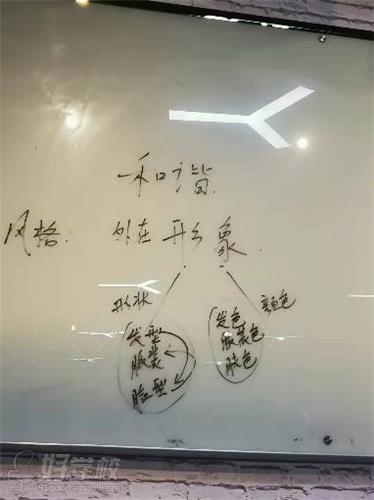 和谐
风格: 外在形象
形状
发型
服装
脸型
颜色
发色
服装色
肤色
好学校
91goodschool.com